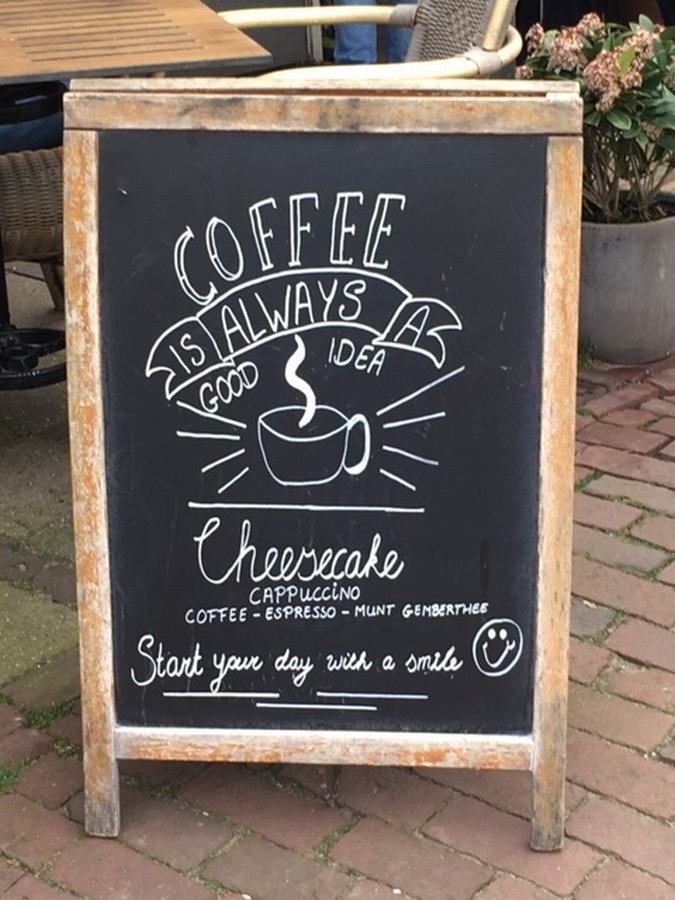 COFFEE
IS ALWAYS A
GOOD IDEA
Cheesecake
CAPPUCCINO
COFFEE - ESPRESSO - MUNT GEMBERTHEE
Start your day with a smile